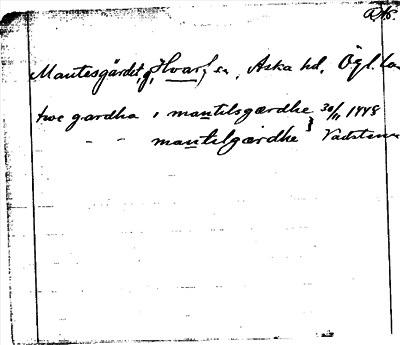 Mantesgärdet, Hvarf sn, Aska hd, Ögl.
twe gardha i mantilsgærdhe } 30/11 1448
" " mantilgærdhe } Vadstena